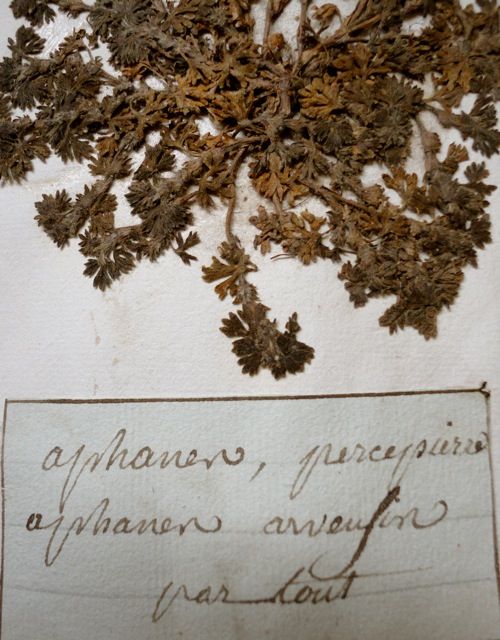 aphanes, percepierre
aphanes arvensis
par tout